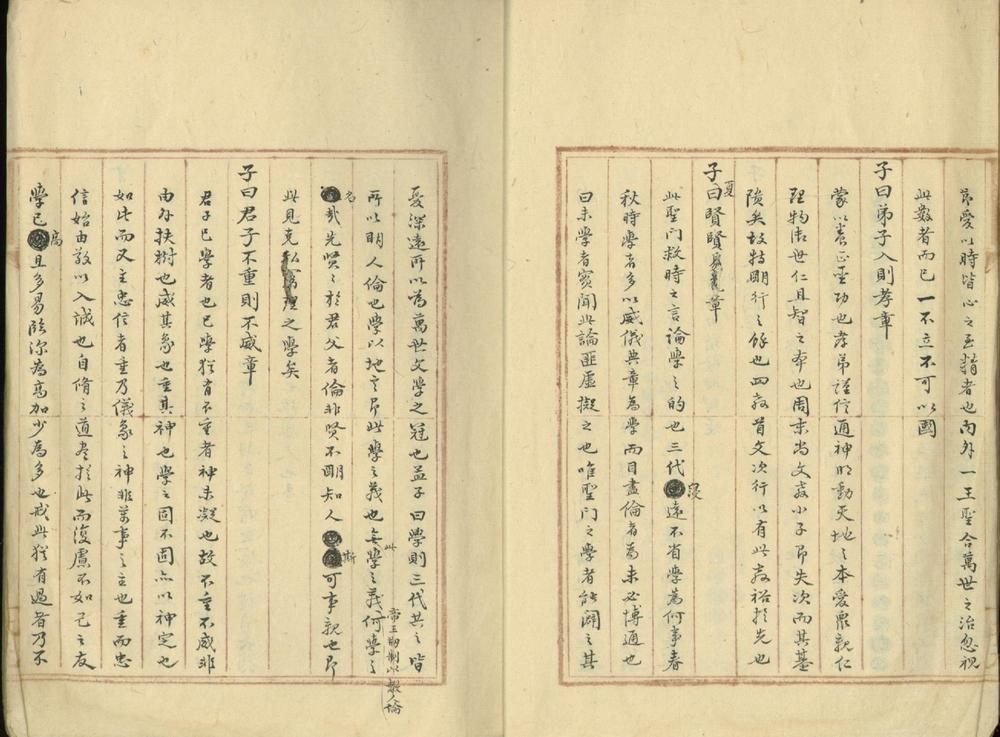 節愛以時皆心之至精者也內外一王聖合萬世之治忽視
此數者而已一不立不可以國
子曰弟子入則孝章
蒙以養正聖功也孝弟謹信通神明動天地之本愛衆親仁
理物御世仁且智之本也周末尚文教小子弟失次而其基
隘矣故特明行之餘也四教首文次行以有此教裕於先也
子夏曰賢賢易色章
此聖門救時之言論學之的也三代寖遠不省學為何事春
秋時學者多以威儀典章為學而目盡倫者為未必博通也
曰未學者實聞此論匪虛擬之也唯聖門之學者能闢之其
憂深遠所以為萬世文學之冠也孟子曰學則三代共之皆
所以明人倫也學以地言即此學之義也無此學之義何學之
名哉先賢之於君父者倫非賢不明知人斯可事親也即
帝王的制以敎人倫
此見克私窮理之學矣
子曰君子不重則不威章
君子已學者也已學猶有不重者神未凝也故不重不威非
由外扶樹也威其象也重其神也學之固不固亦以神定也
如此而又主忠信者重乃儀象之神非萬事之主也重而忠
信始由敬以入誠也自脩之道盡於此而復慮不如己之友
學已高且多易臨深為高加少為多也戒此猶有過者乃不